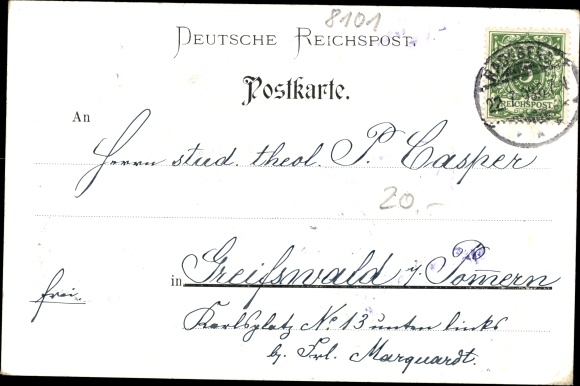 8101
DEUTSCHE REICHSPOST.
Postkarte.
5
REICHSPOST
22
An
Herrn stud. theol. P. Casper
20.-
in Greifswald i/ Pom̅ern
frei.
Karlsplatz No 13 unten links
b. Frl. Marquardt.